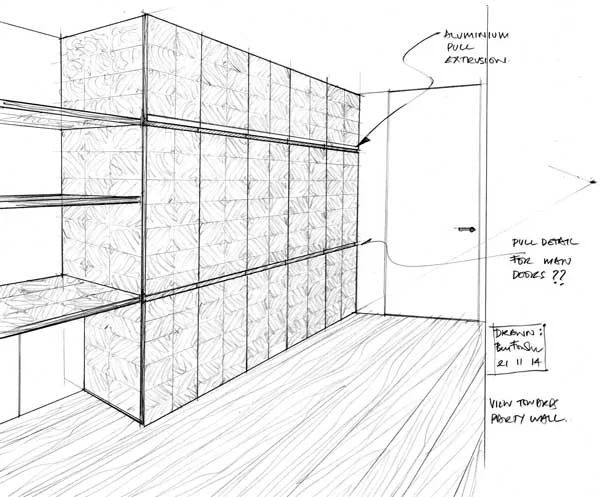 ALUMINIUM
PULL
EXTRUSION.
PULL DETAIL
FOR MAIN
DOORS ??
DRAWN:
21 11 14
VIEW TOWARDS
PARTY WALL.